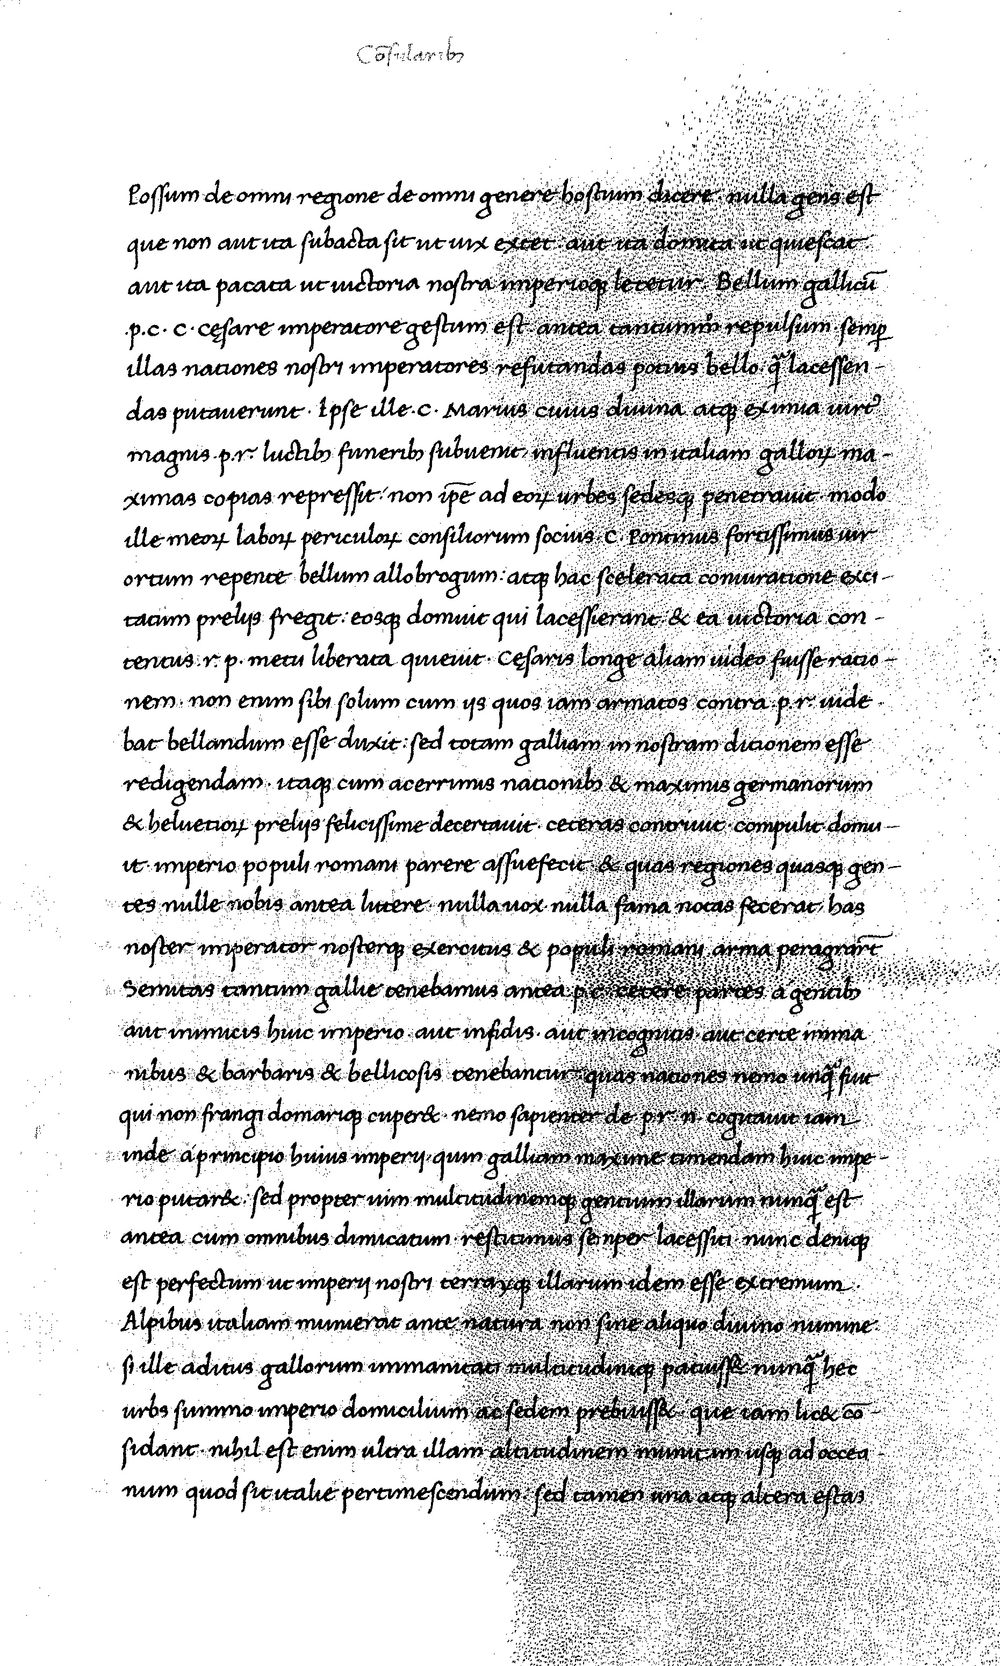 Cōsularibꝫ
Possum de omni regione de omni genere hostium dicere · nulla gens est
que non aut ita subacta sit ut uix extet · aut ita domita ut quiescat
aut ita pacata ut uictoria nostra imperioqꝫ letetur · Bellum gallicū
.p.c. C. cęsare imperatore gestum est · antea tantummº repulsum · semꝑ
illas nationes nostri imperatores refutandas potius bello · q̃ lacessen-
das putauerunt · Ipse ille .C. Marius cuius diuina atqꝫ eximia uirtꝰ
magnis .p.r. luctibꝫ funeribꝫ subuenit, influentis in italiam galloꝝ ma-
ximas copias repressit: non ip̄e ad eoꝝ urbes sedesqꝫ penetrauit · modo
ille meoꝝ laboꝝ periculoꝝ consiliorum socius .C. Pontinus fortissimus uir
ortum repente bellum allobrogum: atqꝫ hac scelerata coniuratione exci-
tatum prelijs fregit: eosqꝫ domuit qui lacessierant: & ea uictoria con-
tentus .r.p. metu liberata quieuit · Cęsaris longe aliam uideo fuisse ratio-
nem · non enim sibi solum cum ijs quos iam armatos contra .p.r. uide-
bat bellandum esse duxit: sed totam galliam in nostram ditionem esse
redigendam · itaqꝫ cum acerrimis nationibꝫ & maximis germanorum
& heluetioꝝ prelijs felicissime decertauit · ceteras contriuit · compulit domu-
it · imperio populi romani parere assuefecit · & quas regiones quasqꝫ gen-
tes nulle nobis antea littere · nulla uox nulla fama notas fecerat, has
noster imperator nosterqꝫ exercitus & populi romani arma peragrarūt
Semitas tantum gallie tenebamus antea .p.c. cetere partes a gentibꝫ
aut inimicis huic imperio · aut infidis · aut incognitis · aut certe imma
nibus & barbaris & bellicosis tenebantur · quas nationes nemo unq̃ fuit
qui non frangi domariqꝫ cuper& · nemo sapienter de .p.r. n. cogitauit iam
inde a principio huius imperij · quin galliam maxime timendam huic impe-
rio putar& · sed propter uim multitudinemqꝫ gentium illarum nunq̃ est
antea cum omnibus dimicatum · restitimus semper lacessiti · nunc deniqꝫ
est perfectum ut imperij nostri terraꝝqꝫ illarum idem esse extremum ·
Alpibus italiam munierat ante natura non sine aliquo diuino numine ·
si ille aditus gallorum immanitati multitudiniqꝫ patuiss& nunq̃ hec
urbs summo imperio domicilium ac sedem prebuiss& · que iam lic& cō-
sidant · nihil est enim ultra illam altitudinem montium usqꝫ ad occea-
num quod sit italie pertimescendum · sed tamen una atqꝫ altera estas